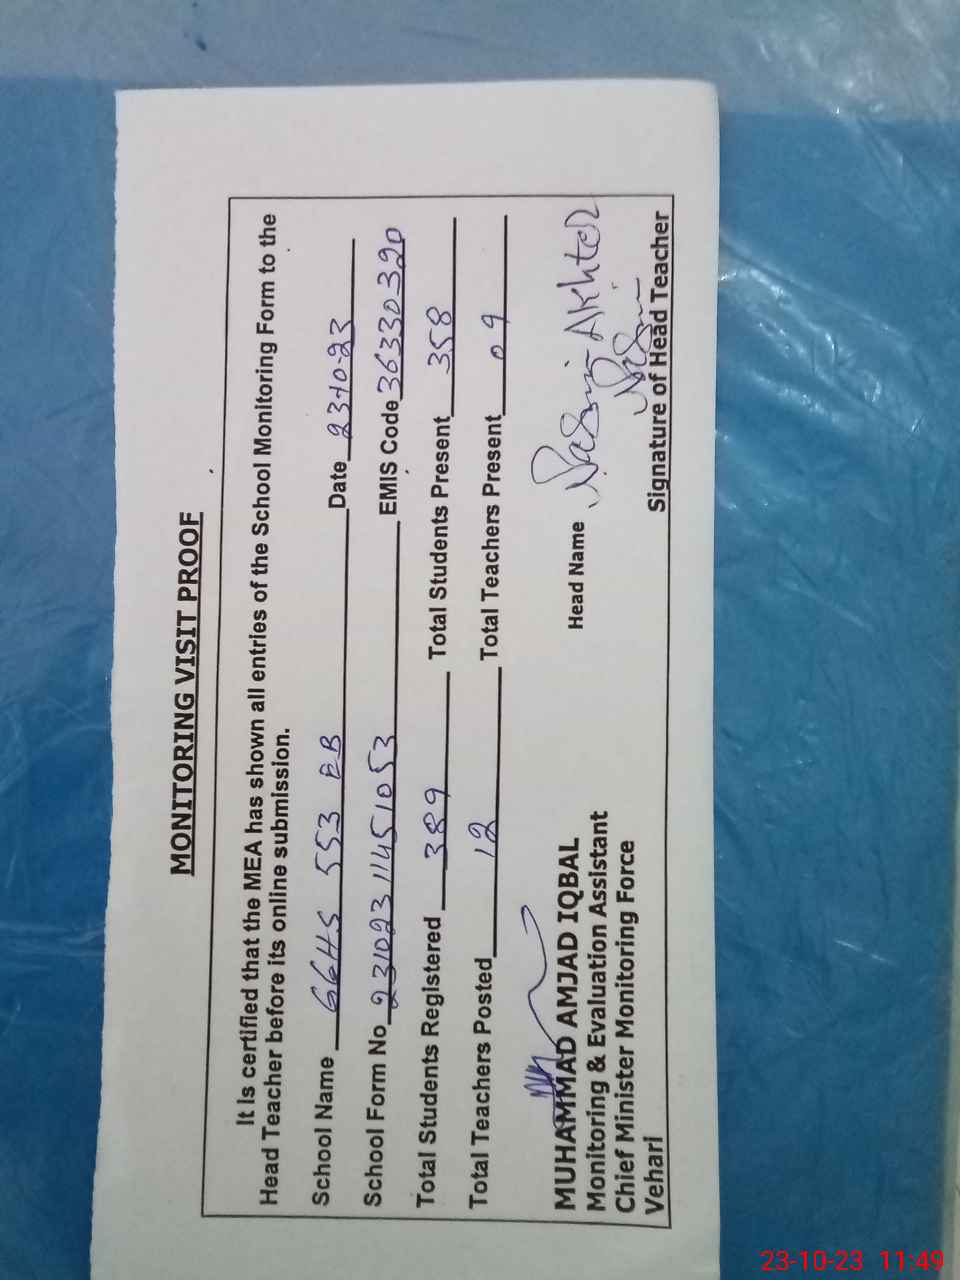 MONITORING VISIT PROOF
It Is certified that the MEA has shown all entries of the School Monitoring Form to the
Head Teacher before its online submission.
School Name GGHS 553 EB Date 23-10-23
School Form No 231023 11451053 EMIS Code 36330320
Total Students Registered 389 Total Students Present 358
Total Teachers Posted 12 Total Teachers Present 09
MUHAMMAD AMJAD IQBAL
Monitoring & Evaluation Assistant
Chief Minister Monitoring Force
Vehari
Head Name Nasim Akhter
Nasim
Signature of Head Teacher
23-10-23 11:49